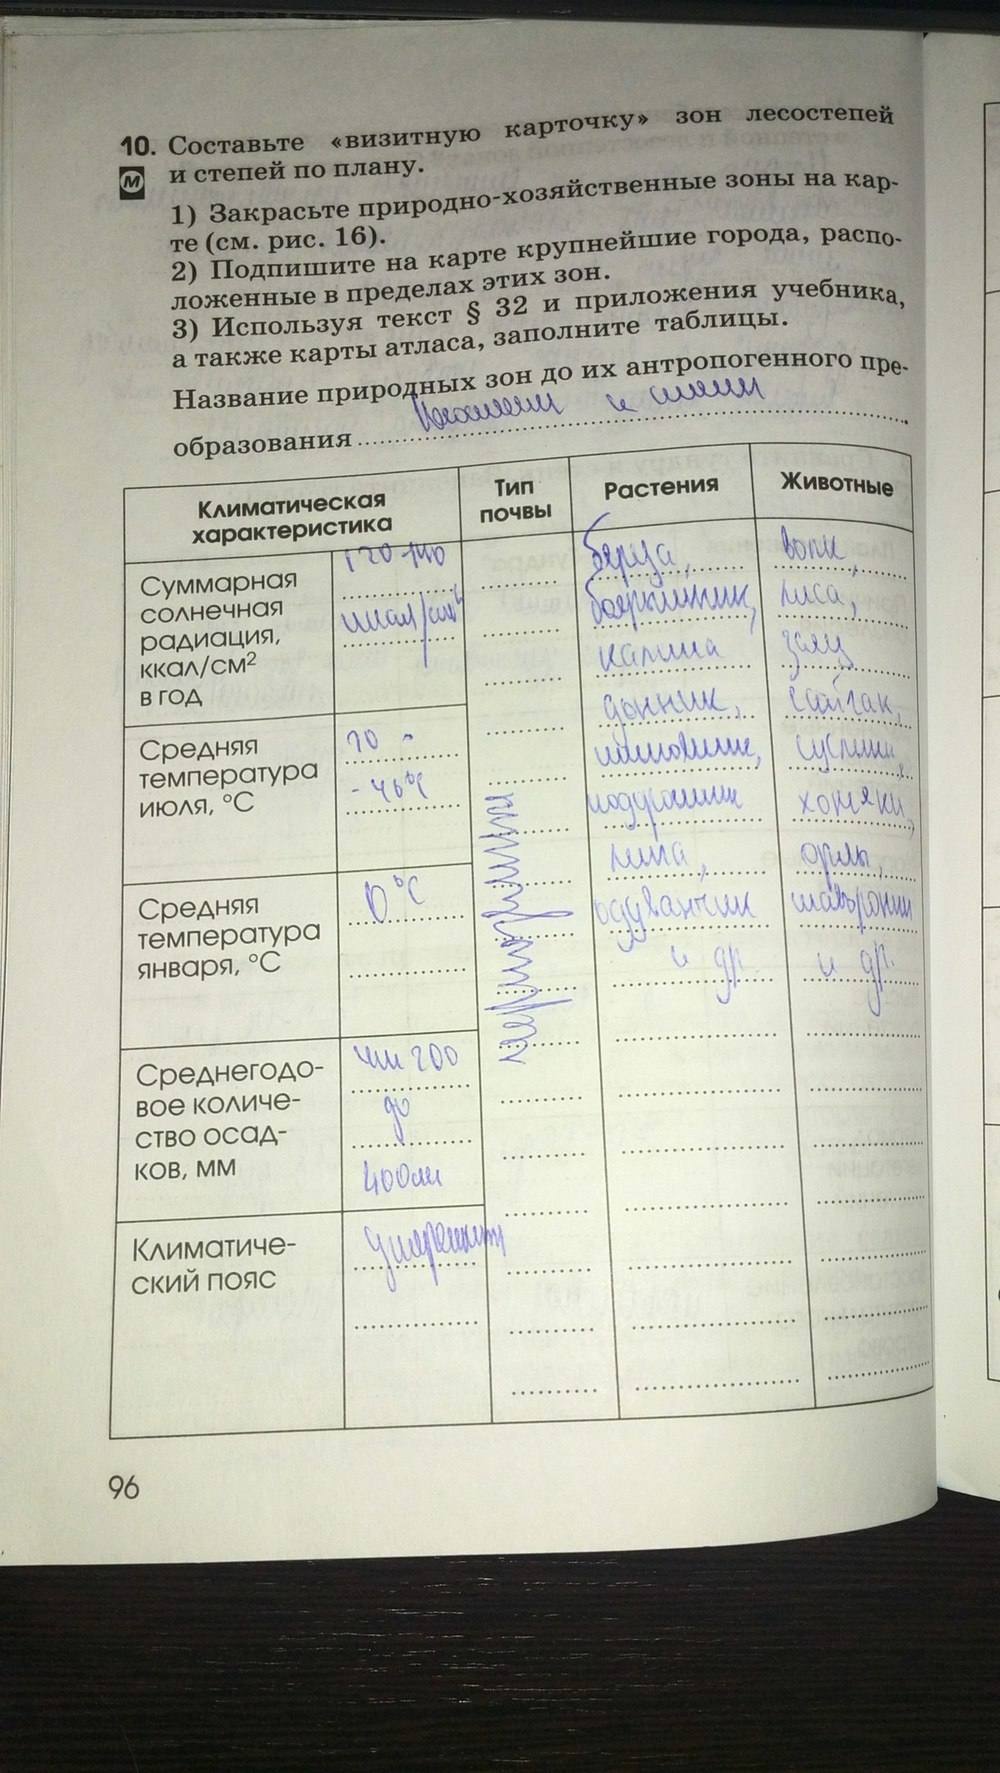 10. Составьте «визитную карточку» зон лесостепей
М
и степей по плану.
1) Закрасьте природно-хозяйственные зоны на кар-
те (см. рис. 16).
2) Подпишите на карте крупнейшие города, распо-
ложенные в пределах этих зон.
3) Используя текст § 32 и приложения учебника,
а также карты атласа, заполните таблицы.
Название природных зон до их антропогенного пре-
образования и степи
Климатическая характеристика
Тип почвы
Растения
Животные
Суммарная
солнечная
радиация,
ккал/см²
в год
120-140
ккал/см²
Средняя
температура
июля, °С
Средняя
температура
января, °С
0°С
Среднегодо-
вое количе-
ство осад-
ков, мм
200
до
400мм
Климатиче-
ский пояс
умеренный
берёза,
боярышник,
калина
донник,
шиповник,
подорожник
липа,
одуванчик
и др.
волк,
лиса,
заяц
сайгак,
суслики,
хомяки,
орлы,
жаворонки
и др.
96